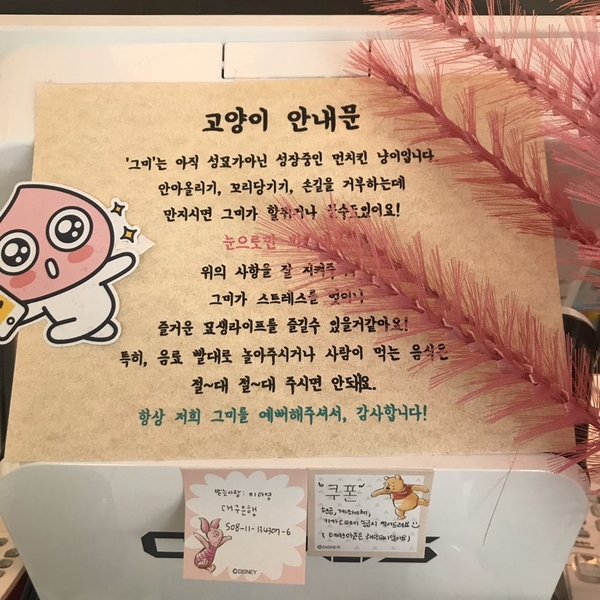 고양이 안내문
'그미'는 아직 성묘가아닌 성장중인 먼치킨 냥이입니다
안아올리기, 꼬리당기기, 손길을 거부하는데
만지시면 그미가 할퀴거나 있어요!
눈으로만
위의 사항을 잘 지켜주
그미가 스트레스를
즐거운 묘생라이프를 즐길수 있을거같아요!
특히, 음료 빨대로 놀아주시거나 사람이 먹는 음식은
절~대 절~대 주시면 안돼요.
항상 저희 그미를 예뻐해주셔서, 감사합니다!
받는사람:
대구은행
508-11-134307-6
©DISNEY
"쿠폰"
현금, 계좌이체,
©DISNEY